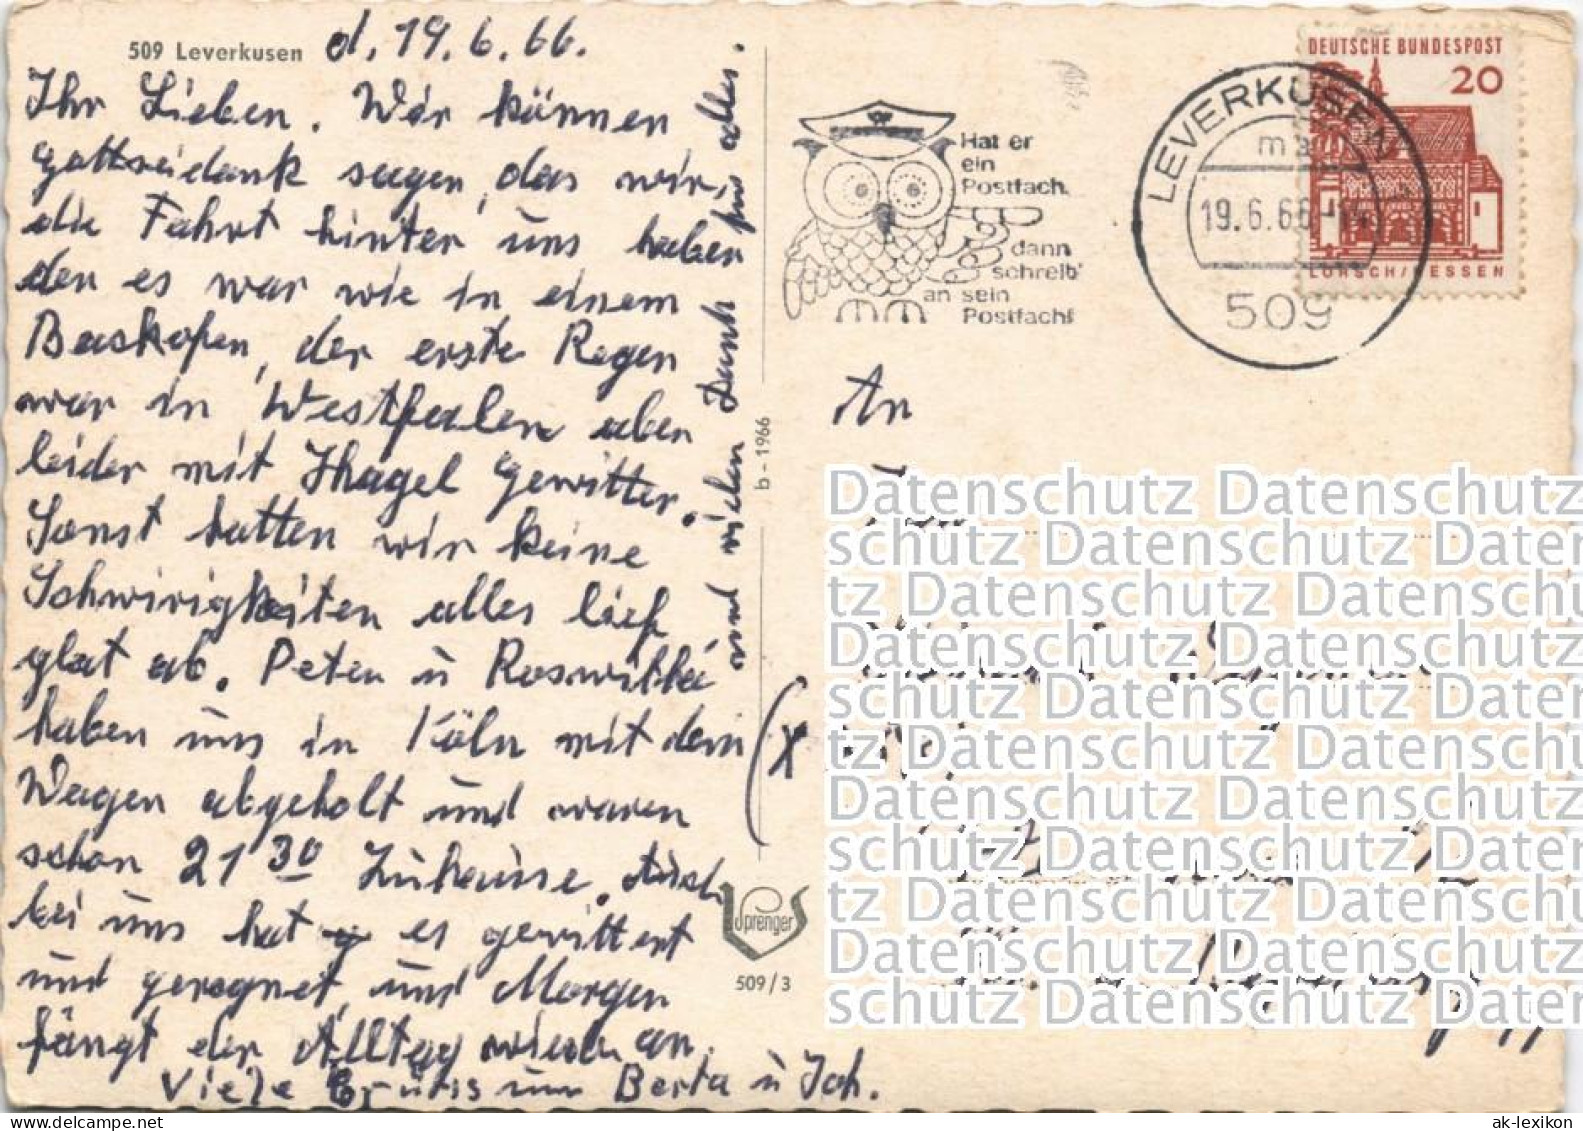 509 Leverkusen d. 19.6.66.
Ihr Lieben. Wir können
gottseidank sagen, das wir,
die Fahrt hinter uns haben
den es war wie in einem
Baskofen, der erste Regen
war in Westfalen aber
leider mit Hagel Gewitter.
Sonst hatten wir keine
Schwirigkeiten alles lief
glat ab. Peter u Roswitha
haben uns in Köln mit dem
Wagen abgeholt und waren
schon 21 30 Zuhause. Auch
bei uns hat es gewittert
und geregnet, und Morgen
fängt der Alltag wieder an.
Viele Grüße von Berta u Joh.
und vielen Dank für alles.
b - 1966
Sprenger
509/3
Hat er
ein
Postfach,
dann
schreib'
an sein
Postfach!
LEVERKUSEN 1
19.6.66-14
509
DEUTSCHE BUNDESPOST
20
LORSCH/HESSEN
An
(X
Datenschutz Datenschutz
schutz Datenschutz Daten
tz Datenschutz Datenschutz
Datenschutz Datenschutz
schutz Datenschutz Daten
tz Datenschutz Datenschutz
Datenschutz Datenschutz
schutz Datenschutz Daten
tz Datenschutz Datenschutz
Datenschutz Datenschutz
schutz Datenschutz Daten
ak-lexikon